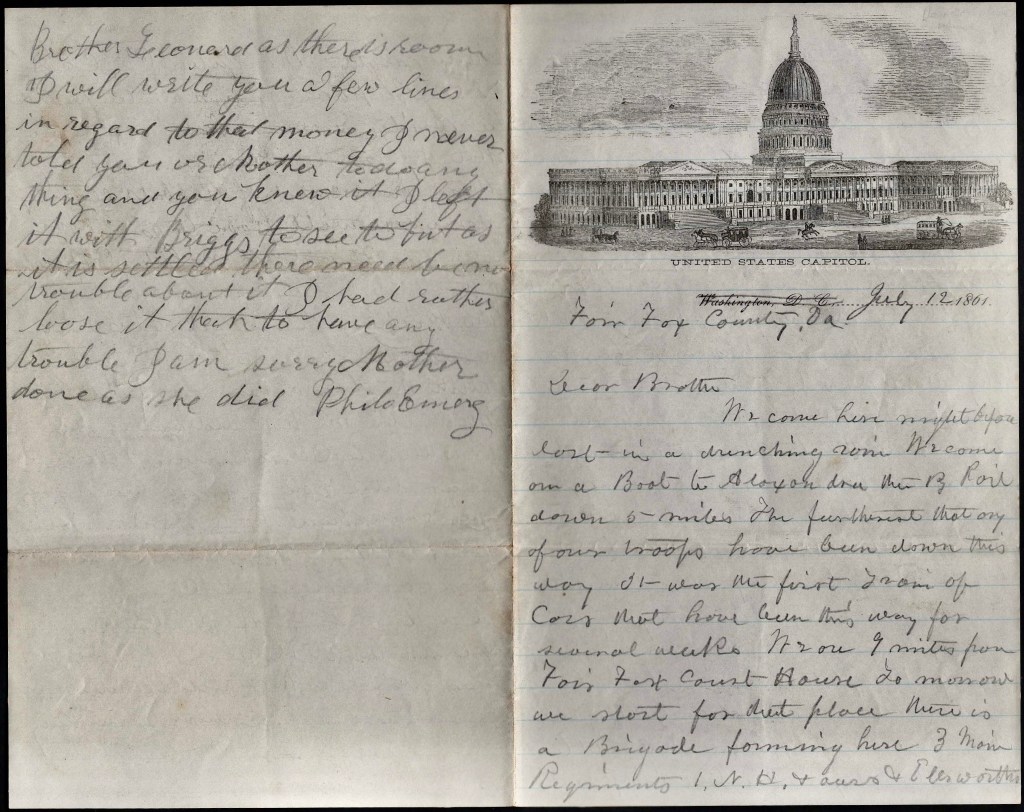 Brother Leonard as there is room
I will write you a few lines
in regard to that money I never
told you or Mother to do any
thing and you knew it I left
it with Briggs to see to but as
it is settled there need be no
trouble about it I had rather
loose it than to have any
trouble I am sorry Mother
done as she did Philo Emery
UNITED STATES CAPITOL.
Washington, D. C. July 12 1861
Fair Fox County, Va.
Dear Brother
We come here night before
last in a drenching rain We come
on a Boat to Alaxandra then By Rail
down 5 miles The furtherest that any
of our troops have been down this
way It was the first Train of
Cars that have been this way for
several weeks We are 9 miles from
Fair Fax Court House To morrow
we start for that place there is
a Brigade forming here 3 Main
Regiments 1, N. H, & ours & Ellsworths